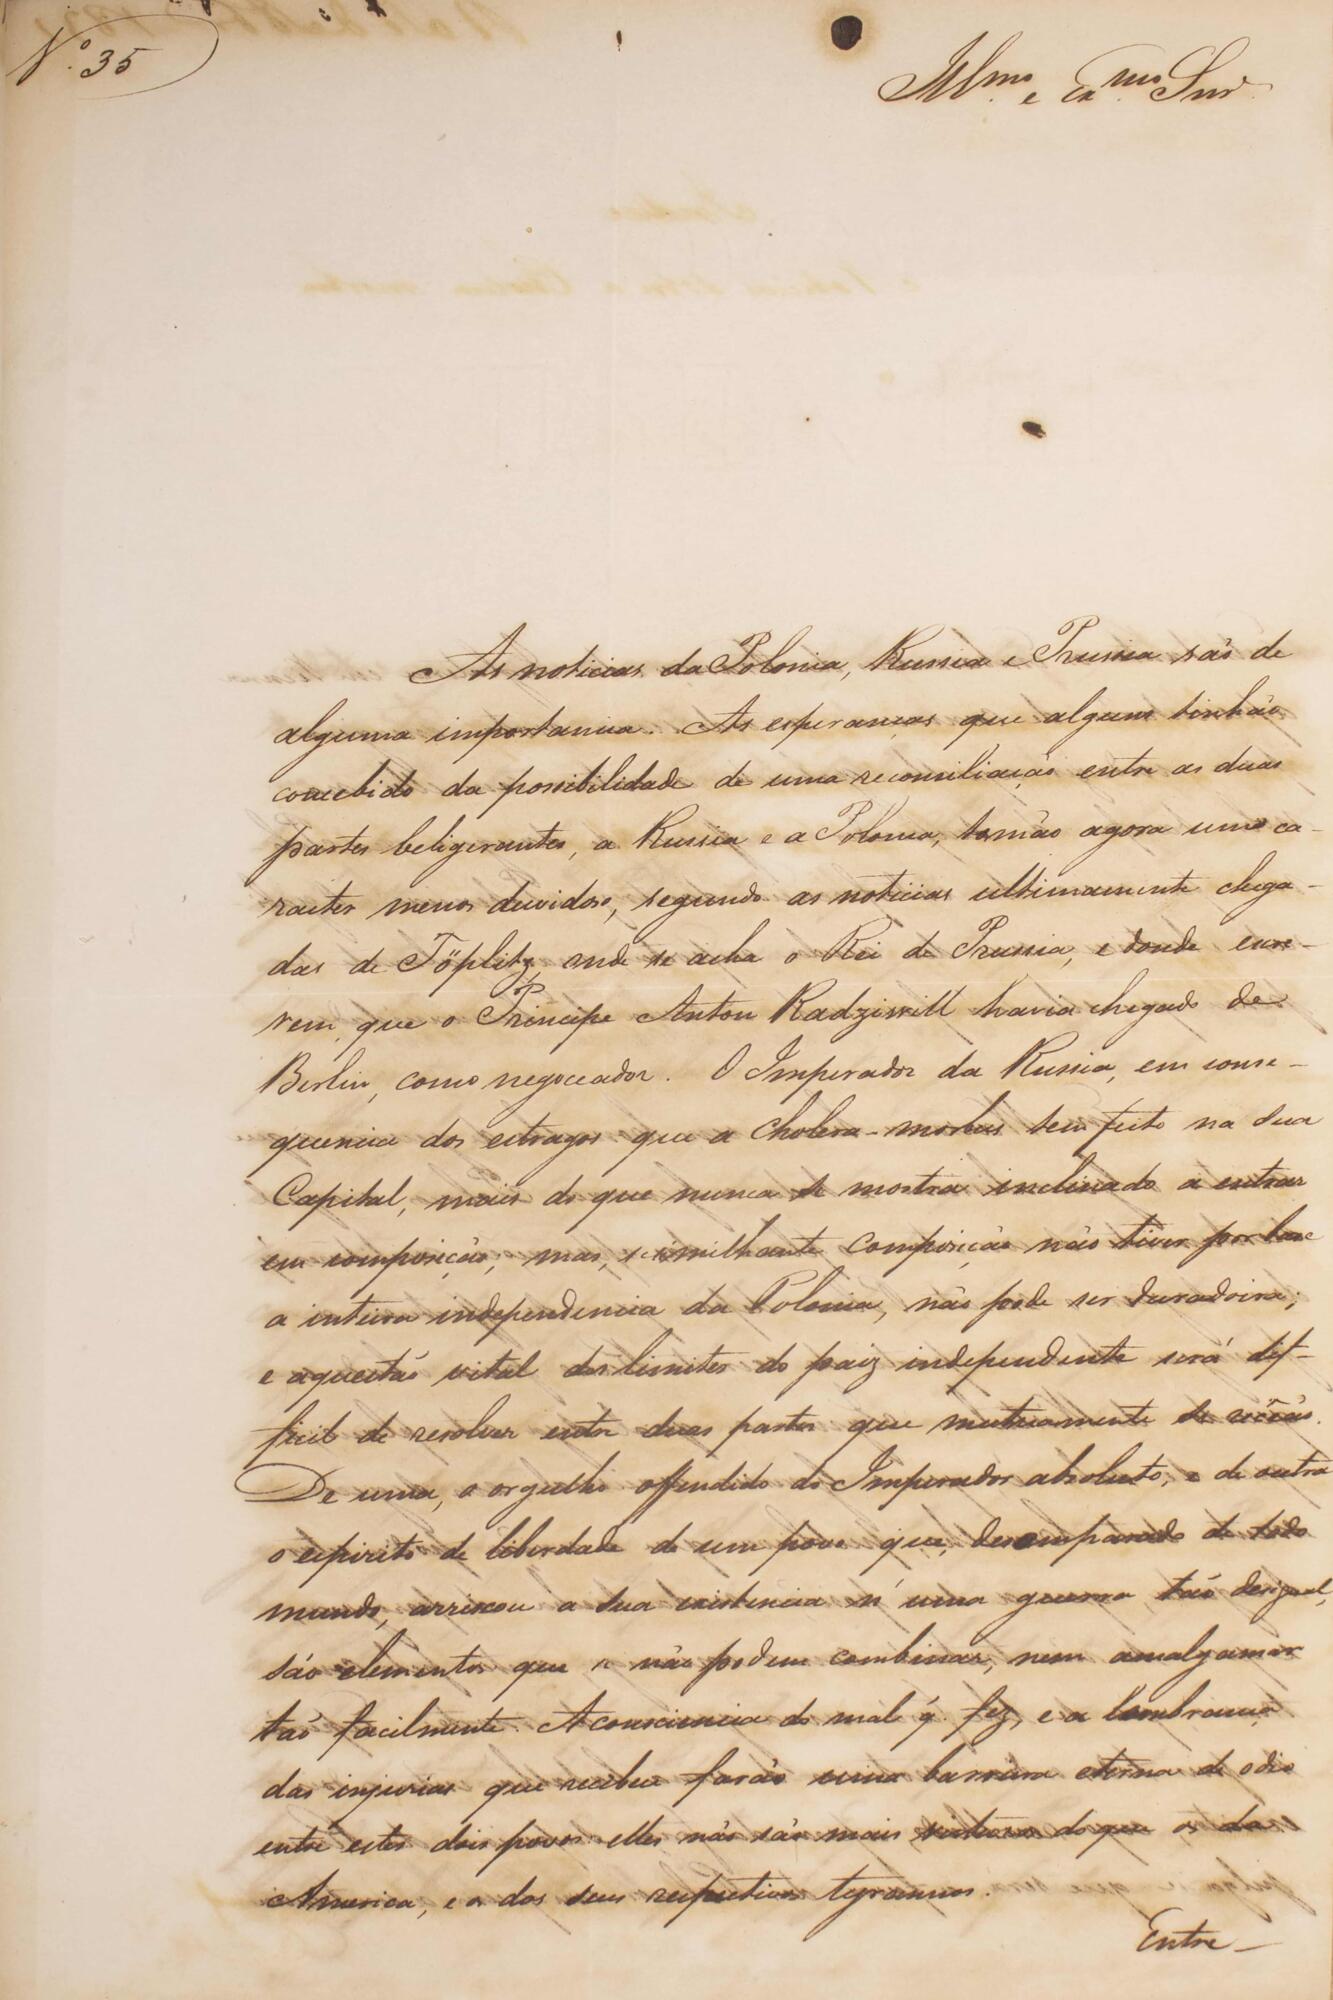 Nº 35
Illmo. e Exmo. Snr.
As noticias da Polonia, Russia e Prussia são de
alguma importancia. As esperanças que alguns tinhão
concebido da possibilidade de uma reconsiliação entre as duas
partes beligerantes, a Russia e a Polonia, tomão agora um ca-
racter menos duvidoso, segundo as noticias ultimamente chega-
das de Töplitz, onde se acha o Rei de Prussia, e donde escre-
vem, que o Principe Anton Radziwill havia chegado de
Berlin, como negoceador. O Imperador da Russia, em conse-
quencia dos estragos que a Cholera-morbus tem feito na sua
Capital, mais do que nunca se mostra inclinado a entrar
em composição; mas, se similhante composição não tiver por base
a inteira independencia da Polonia, não pode ser duradoira;
e a questão vital dos limites do paiz independente será dif-
ficil de resolver entre duas partes que mutuamente se
De uma, o orgulho offendido do Imperador absoluto, e de outra
o espirito de liberdade de um povo que, desemparado de todo
mundo, arriscou a sua existencia n'uma guerra tão desigual,
são elementos que se não podem combinar, nem amalgamar
tão facilmente. A consciencia do mal q. fez, e a lembrança
das injurias que recebeu farão uma barreira eterna de odio
entre estes dois povos: elles não são mais do que os da
America, e os dos seus respectivos tyrannos.
Entre-